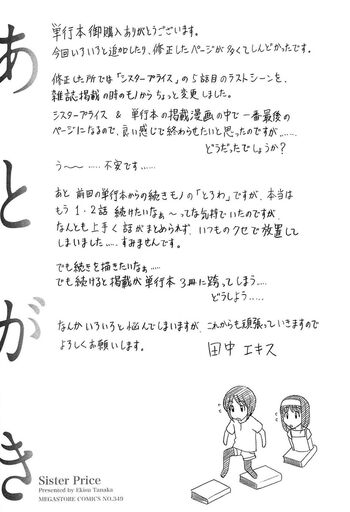 あとがき
単行本御購入ありがとうございます。
今回いろいろと追加したり、修正したページが多くてしんどかったです。
修正した所では「シスタープライス」の5話目のラストシーンを、
雑誌掲載の時のモノからちょっと変更しました。
シスタープライス & 単行本の掲載漫画の中で一番最後の
ページになるので、良い感じで終わらせたいと思ったのですが……
どうだったでしょうか?
う〜……不安です……
あと 前回の単行本からの続きモノの「とろわ」ですが、本当は
もう1・2話 続けたいなぁ〜ってな気持でいたのですが、
なんとも上手く話がまとめられず、いつものクセで放置して
しまいました……すみませんです。
でも続きを描きたいなぁ……
でも続けると掲載が単行本3冊に跨ってしまう……
どうしよう……
なんかいろいろと悩んでしまいますが、これからも頑張っていきますので
よろしくお願いします。
田中 エキス
Sister Price
Presented by Ekisu Tanaka
MEGASTORE COMICS NO.349